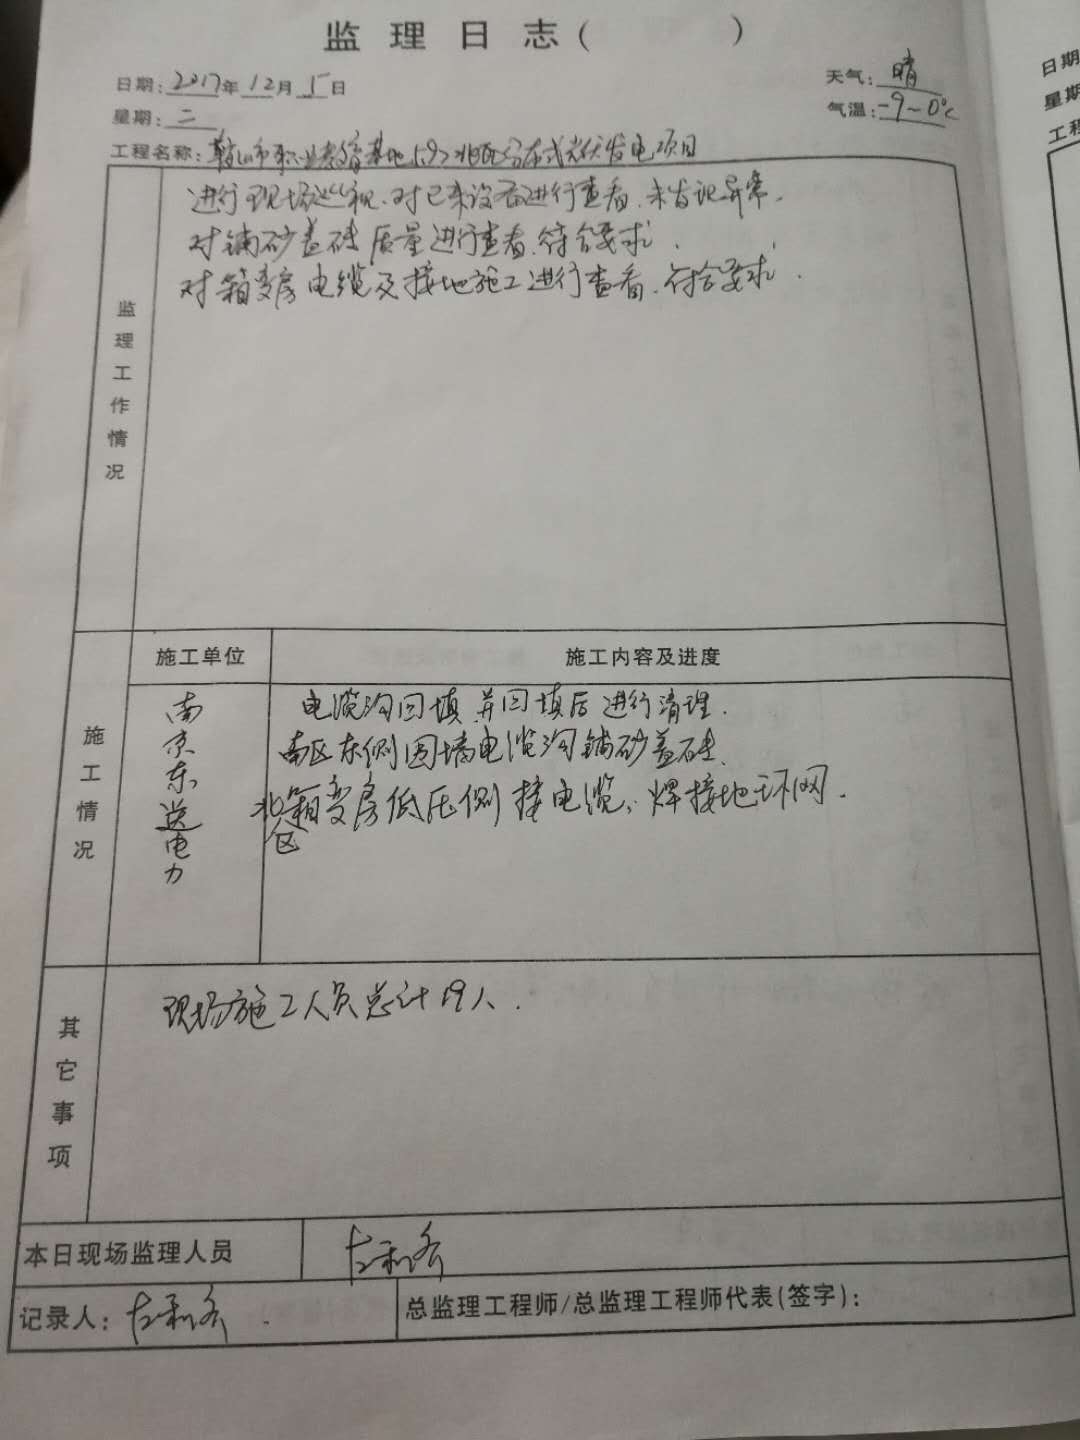 监理日志(    )
日期: 2017年 12月 5日
天气: 晴
星期: 二
气温: -9~0℃
工程名称: 鞍山市职业教育基地5.9 分布式光伏发电项目
监理工作情况
进行现场巡视.对已来设备进行查看.未发现异常.
对铺砂盖砖质量进行查看.符合要求.
对箱变房电缆及接地施工进行查看.符合要求.
施工情况
施工单位
施工内容及进度
南京东送电力
电缆沟回填并回填后进行清理.
南区东侧围墙电缆沟铺砂盖砖.
北区箱变房低压侧接电缆、焊接地环网.
其它事项
现场施工人员总计19人.
本日现场监理人员
记录人:
总监理工程师/总监理工程师代表(签字):
日期
星期
工程